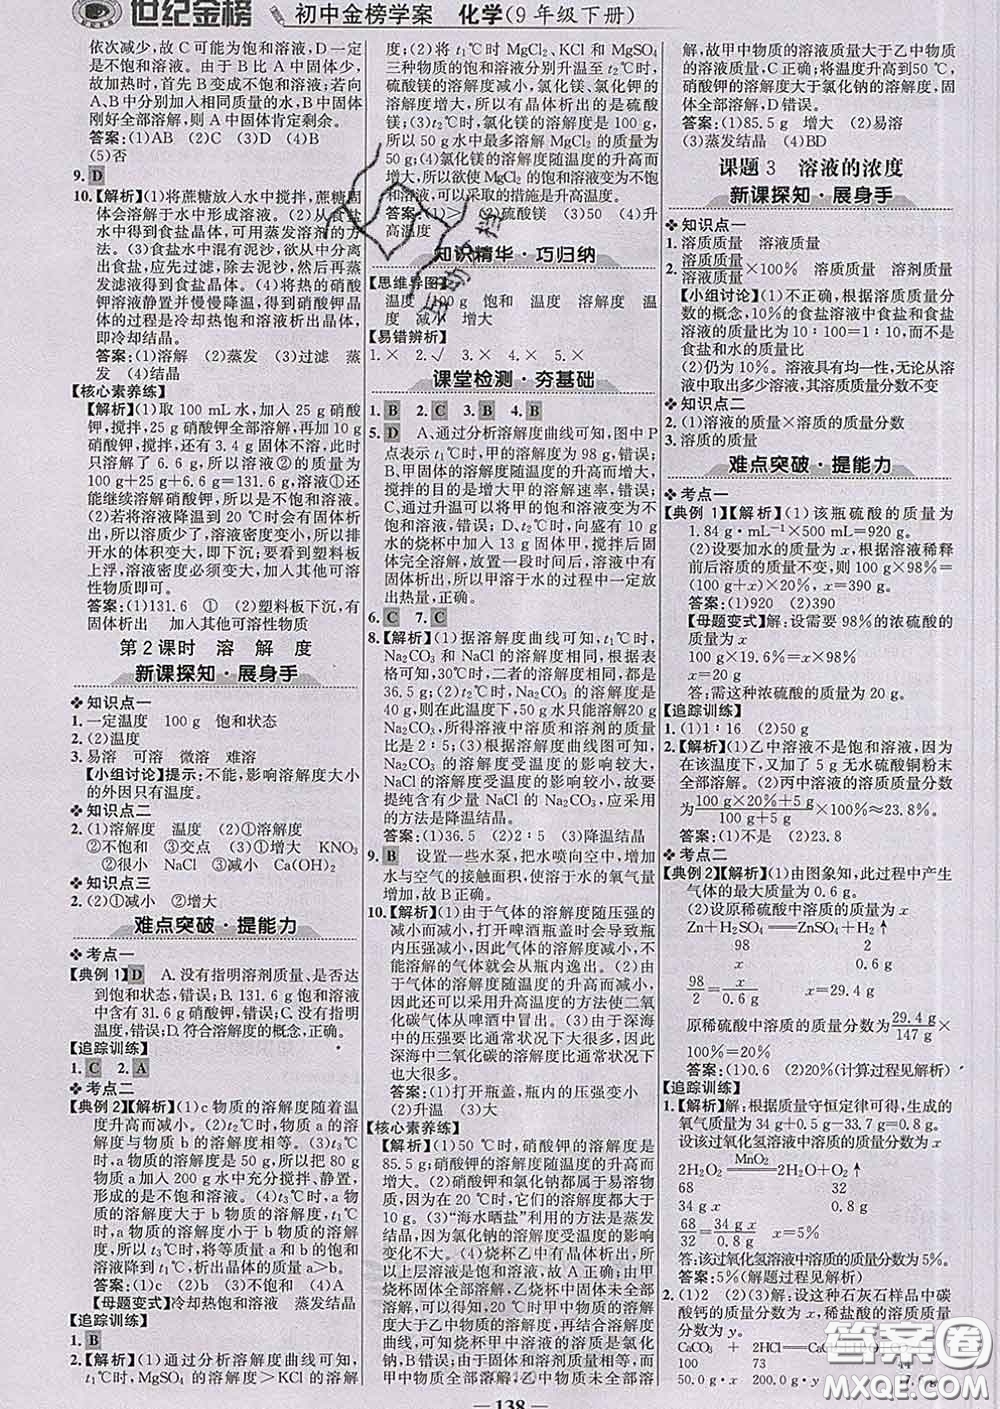 世纪金榜 初中金榜学案 化学(9年级下册)
依次减少,故C可能为饱和溶液,D一定
是不饱和溶液。由于B比A中固体少,
故加热时,首先B变成不饱和溶液;若向
A、B中分别加入相同质量的水,B中固体
刚好全部溶解,则A中固体肯定有剩余。
答案:(1)AB (2)C (3)D (4)B
(5)否
9. D
10.【解析】(1)将蔗糖放入水中搅拌,蔗糖固
体会溶解于水中形成溶液。(2)从食盐
水中得到食盐晶体,可用蒸发溶剂的方
法。(3)食盐水中混有泥沙,欲从中分离
出食盐,应先过滤,除去泥沙,然后再蒸
发滤液得到食盐晶体。(4)将热的硝酸
钾溶液静置并慢慢降温,得到硝酸钾晶
体的过程是冷却热饱和溶液析出晶体,
即冷却结晶。
答案:(1)溶解 (2)蒸发 (3)过滤 蒸
发 (4)结晶
【核心素养练】
【解析】(1)取100 mL水,加入25 g硝酸
钾,搅拌,25 g硝酸钾全部溶解,再加10 g
硝酸钾,搅拌,还有3.4 g固体不溶,此时
只溶解了6.6 g,所以溶液②的质量为
100 g+25 g+6.6 g=131.6 g,溶液①还
能继续溶解硝酸钾,所以为不饱和溶液。
(2)若将溶液降温到20 ℃时会有固体析
出,所以溶质少了,溶液密度变小,所以排
开水的体积变大,即下沉;要看到塑料板
上浮,溶液密度必须变大,加入其他可溶
性物质即可。
答案:(1)131.6 ① (2)塑料板下沉,有
固体析出 加入其他可溶性物质
第2课时 溶 解 度
新课探知·展身手
❖ 知识点一
1. 一定温度 100 g 饱和状态
2. (2)温度
3. 易溶 可溶 微溶 难溶
【小组讨论】提示:不能,影响溶解度大小
的外因只有温度。
❖ 知识点二
2. (1)溶解度 温度 (2)①溶解度
②不饱和 ③交点 (3)①增大 KNO₃
②很小 NaCl ③减小 Ca(OH)₂
❖ 知识点三
2. (2)①减小 ②增大
难点突破·提能力
❖ 考点一
【典例1】D A.没有指明溶剂质量、是否达
到饱和状态,错误;B.131.6 g的饱和溶液
中含有31.6 g硝酸钾,错误;C.没有指明
温度,错误;D.符合溶解度的概念,正确。
【追踪训练】
1. C 2. A
❖ 考点二
【典例2】【解析】(1)c物质的溶解度随着温
度升高而减小。(2)t₂℃时,a物质的溶
解度与物质b的溶解度相等。(3)t₃℃
时,a物质的溶解度是50 g,所以把80 g
物质a加入200 g水中充分搅拌、静置,
形成的是不饱和溶液。(4)t₃℃时,a物
质的溶解度大于b物质的溶解度,t₁℃
时,a物质的溶解度小于b物质的溶解
度,所以t₃℃时,等质量的a、b饱和溶
液降到t₁℃,析出晶体的质量a>b。
答案:(1)c (2)b (3)不饱和 (4)A
【母题变式】冷却热饱和溶液 蒸发结晶
【追踪训练】
1. B
2.【解析】(1)通过分析溶解度曲线可知,
t₁℃时,MgSO₄的溶解度>KCl的溶解
度;(2)将t₁℃时MgCl₂、KCl和MgSO₄
三种物质的饱和溶液分别升温至t₂℃时,
硫酸镁的溶解度减小,氯化镁、氯化钾的
溶解度增大,所以有晶体析出的是硫酸
镁;(3)t₂℃时,氯化镁的溶解度是100 g,
所以50 g水中最多溶解MgCl₂的质量为
50 g;(4)氯化镁的溶解度随温度的升高而
增大,所以欲使MgCl₂的饱和溶液变为不饱
和溶液,可以采取的措施是升高温度。
答案:(1)> (2)硫酸镁 (3)50 (4)升
高温度
知识精华·巧归纳
【思维导图】
温度 100 g 饱和 温度 溶解度 温
度 减小 增大
【易错辨析】
1. × 2. √ 3. × 4. × 5. ×
课堂检测·夯基础
1. B 2. C 3. B 4. B
5. D A、通过分析溶解度曲线可知,图中P
点表示t₁℃时,甲的溶解度为98 g,错误;
B、甲固体的溶解度随温度的升高而增大,
搅拌的目的是增大甲的溶解速率,错误;
C、通过升温可以将甲的饱和溶液变为不
饱和溶液,错误;D、t₂℃时,向盛有10 g
水的烧杯中加入13 g固体甲,搅拌后固
体完全溶解,放置一段时间后,溶液中有
固体析出,所以甲溶于水的过程中一定放
出热量,正确。
6. C 7. C
8.【解析】(1)据溶解度曲线可知,t₁℃时,
Na₂CO₃和NaCl的溶解度相同,根据表
格可知,30℃时,二者的溶解度相同,都是
36.5 g;(2)t₂℃时,Na₂CO₃的溶解度是
40 g,则在此温度下,50 g水只能溶解20 g
Na₂CO₃,所得溶液中溶质和溶剂的质量
比是2∶5;(3)根据溶解度曲线图可知,
Na₂CO₃的溶解度受温度的影响较大,
NaCl的溶解度受温度的影响较小,故要
提纯含有少量NaCl的Na₂CO₃,应采用
的方法是降温结晶。
答案:(1)36.5 (2)2∶5 (3)降温结晶
9. B 设置一些水泵,把水喷向空中,增加
水与空气的接触面积,使水中的氧气量
增大,故B正确。
10.【解析】(1)由于气体的溶解度随压强的
减小而减小,打开啤酒瓶盖时会导致瓶
内压强变小,因此气体的溶解度变小,
不能溶解的气体就会从瓶内逸出。(2)
气体的溶解度随温度的升高而减小,因
此可以采用升高温度的方法使二氧
化碳气体从啤酒中冒出。(3)由于深海
中的压强要比海平面大很多,因此在
深海中二氧化碳的溶解度比通常状况下
也大很多。
答案:(1)打开瓶盖,瓶内的压强变小
(2)升温 (3)大
【核心素养练】
【解析】(1)50 ℃时,硝酸钾的溶解度是
85.5 g;硝酸钾的溶解度随温度的升高而
增大。(2)硝酸钾和氯化钠都属于易溶物
质,因为在20 ℃时,它们的溶解度都大于
10 g。(3)“海水晒盐”利用的方法是蒸发结
晶,因为氯化钠的溶解度受温度的影响
变化不大。(4)烧杯乙中有晶体析出,所
以上层溶液是饱和溶液,故A正确;由甲
烧杯固体全部溶解,乙烧杯中固体未全部
溶解,且20℃时氯化钠的溶解度大于硝
酸钾的溶解度,可知甲中物质是氯化钠,
乙中物质是硝酸钾,故B错误;由溶解度
曲线可知,烧杯甲中溶液的溶质是氯化
钠,由于甲中固体全部溶解,乙中固体未
全部溶解,且甲、乙中物质未全部溶
解,故甲中物质的溶液质量大于乙中物质
的溶液质量,C正确;将温度升高到50 ℃,
硝酸钾的溶解度大于氯化钠的溶解度,
固体全部溶解,D错误。
答案:(1)85.5 g 增大 (2)易溶
(3)蒸发结晶 (4)BD
课题3 溶液的浓度
新课探知·展身手
❖ 知识点一
1. 溶质质量 溶液质量
2. 溶质质量/溶液质量×100% 溶质质量 溶剂质量
【小组讨论】(1)不正确,根据溶质质量分
数的概念,10%的食盐溶液中食盐和食盐
溶液的质量比为10∶100=1∶10,而不是
食盐和水的质量比
(2)仍为10%。溶液具有均一性,无论从溶
液中取出多少溶液,其溶质质量分数不变
❖ 知识点二
2. (1)溶液的质量×溶质的质量分数
3. 溶质的质量
难点突破·提能力
❖ 考点一
【典例1】【解析】(1)该瓶硫酸的质量为
1.84 g·mL⁻¹×500 mL=920 g。
(2)设要加水的质量为x,根据溶液稀释
前后溶质的质量不变,则100 g×98%=
(100 g+x)×20%,x=390 g。
答案:(1)920 (2)390
【母题变式】解:设需要98%的浓硫酸的
质量为x
100 g×19.6%=x×98%
x=20 g
答:需这种浓硫酸的质量为20 g。
【追踪训练】
1. (1)1∶16 (2)50 g
2.【解析】(1)乙中溶液不是饱和溶液,因为
在该温度下,又加了5 g无水硫酸铜粉末
全部溶解。(2)丙中溶液的溶质质量分数
为(100 g×20%+5 g)/(100 g+5 g)×100%≈23.8%。
答案:(1)不是 (2)23.8
❖ 考点二
【典例2】【解析】(1)由图象知,此过程中产生
气体的最大质量为0.6 g。
(2)设原稀硫酸中溶质的质量为x
Zn+H₂SO₄══ZnSO₄+H₂↑
98 2
x 0.6 g
98/2=x/0.6 g x=29.4 g
原稀硫酸中溶质的质量分数为29.4 g/147 g×
100%=20%
答案:(1)0.6 (2)20%(计算过程见解析)
【追踪训练】
1.【解析】解:根据质量守恒定律可得,生成的
氧气质量为34 g+0.5 g-33.7 g=0.8 g。
设该过氧化氢溶液中溶质的质量分数为x
MnO₂
2H₂O₂══2H₂O+O₂↑
68 32
34 g x 0.8 g
68/32=34 g x/0.8 g x=5%
答:该过氧化氢溶液中溶质的质量分数为5%。
答案:5%(解题过程见解析)
2. (1)2 (2)(3)解:设这种石灰石样品中碳
酸钙的质量分数为x,稀盐酸的溶质质量
分数为y。
CaCO₃ + 2HCl
100 73 44
50.0 g·x 200.0 g·y
138
答案圈
MXQE.COM